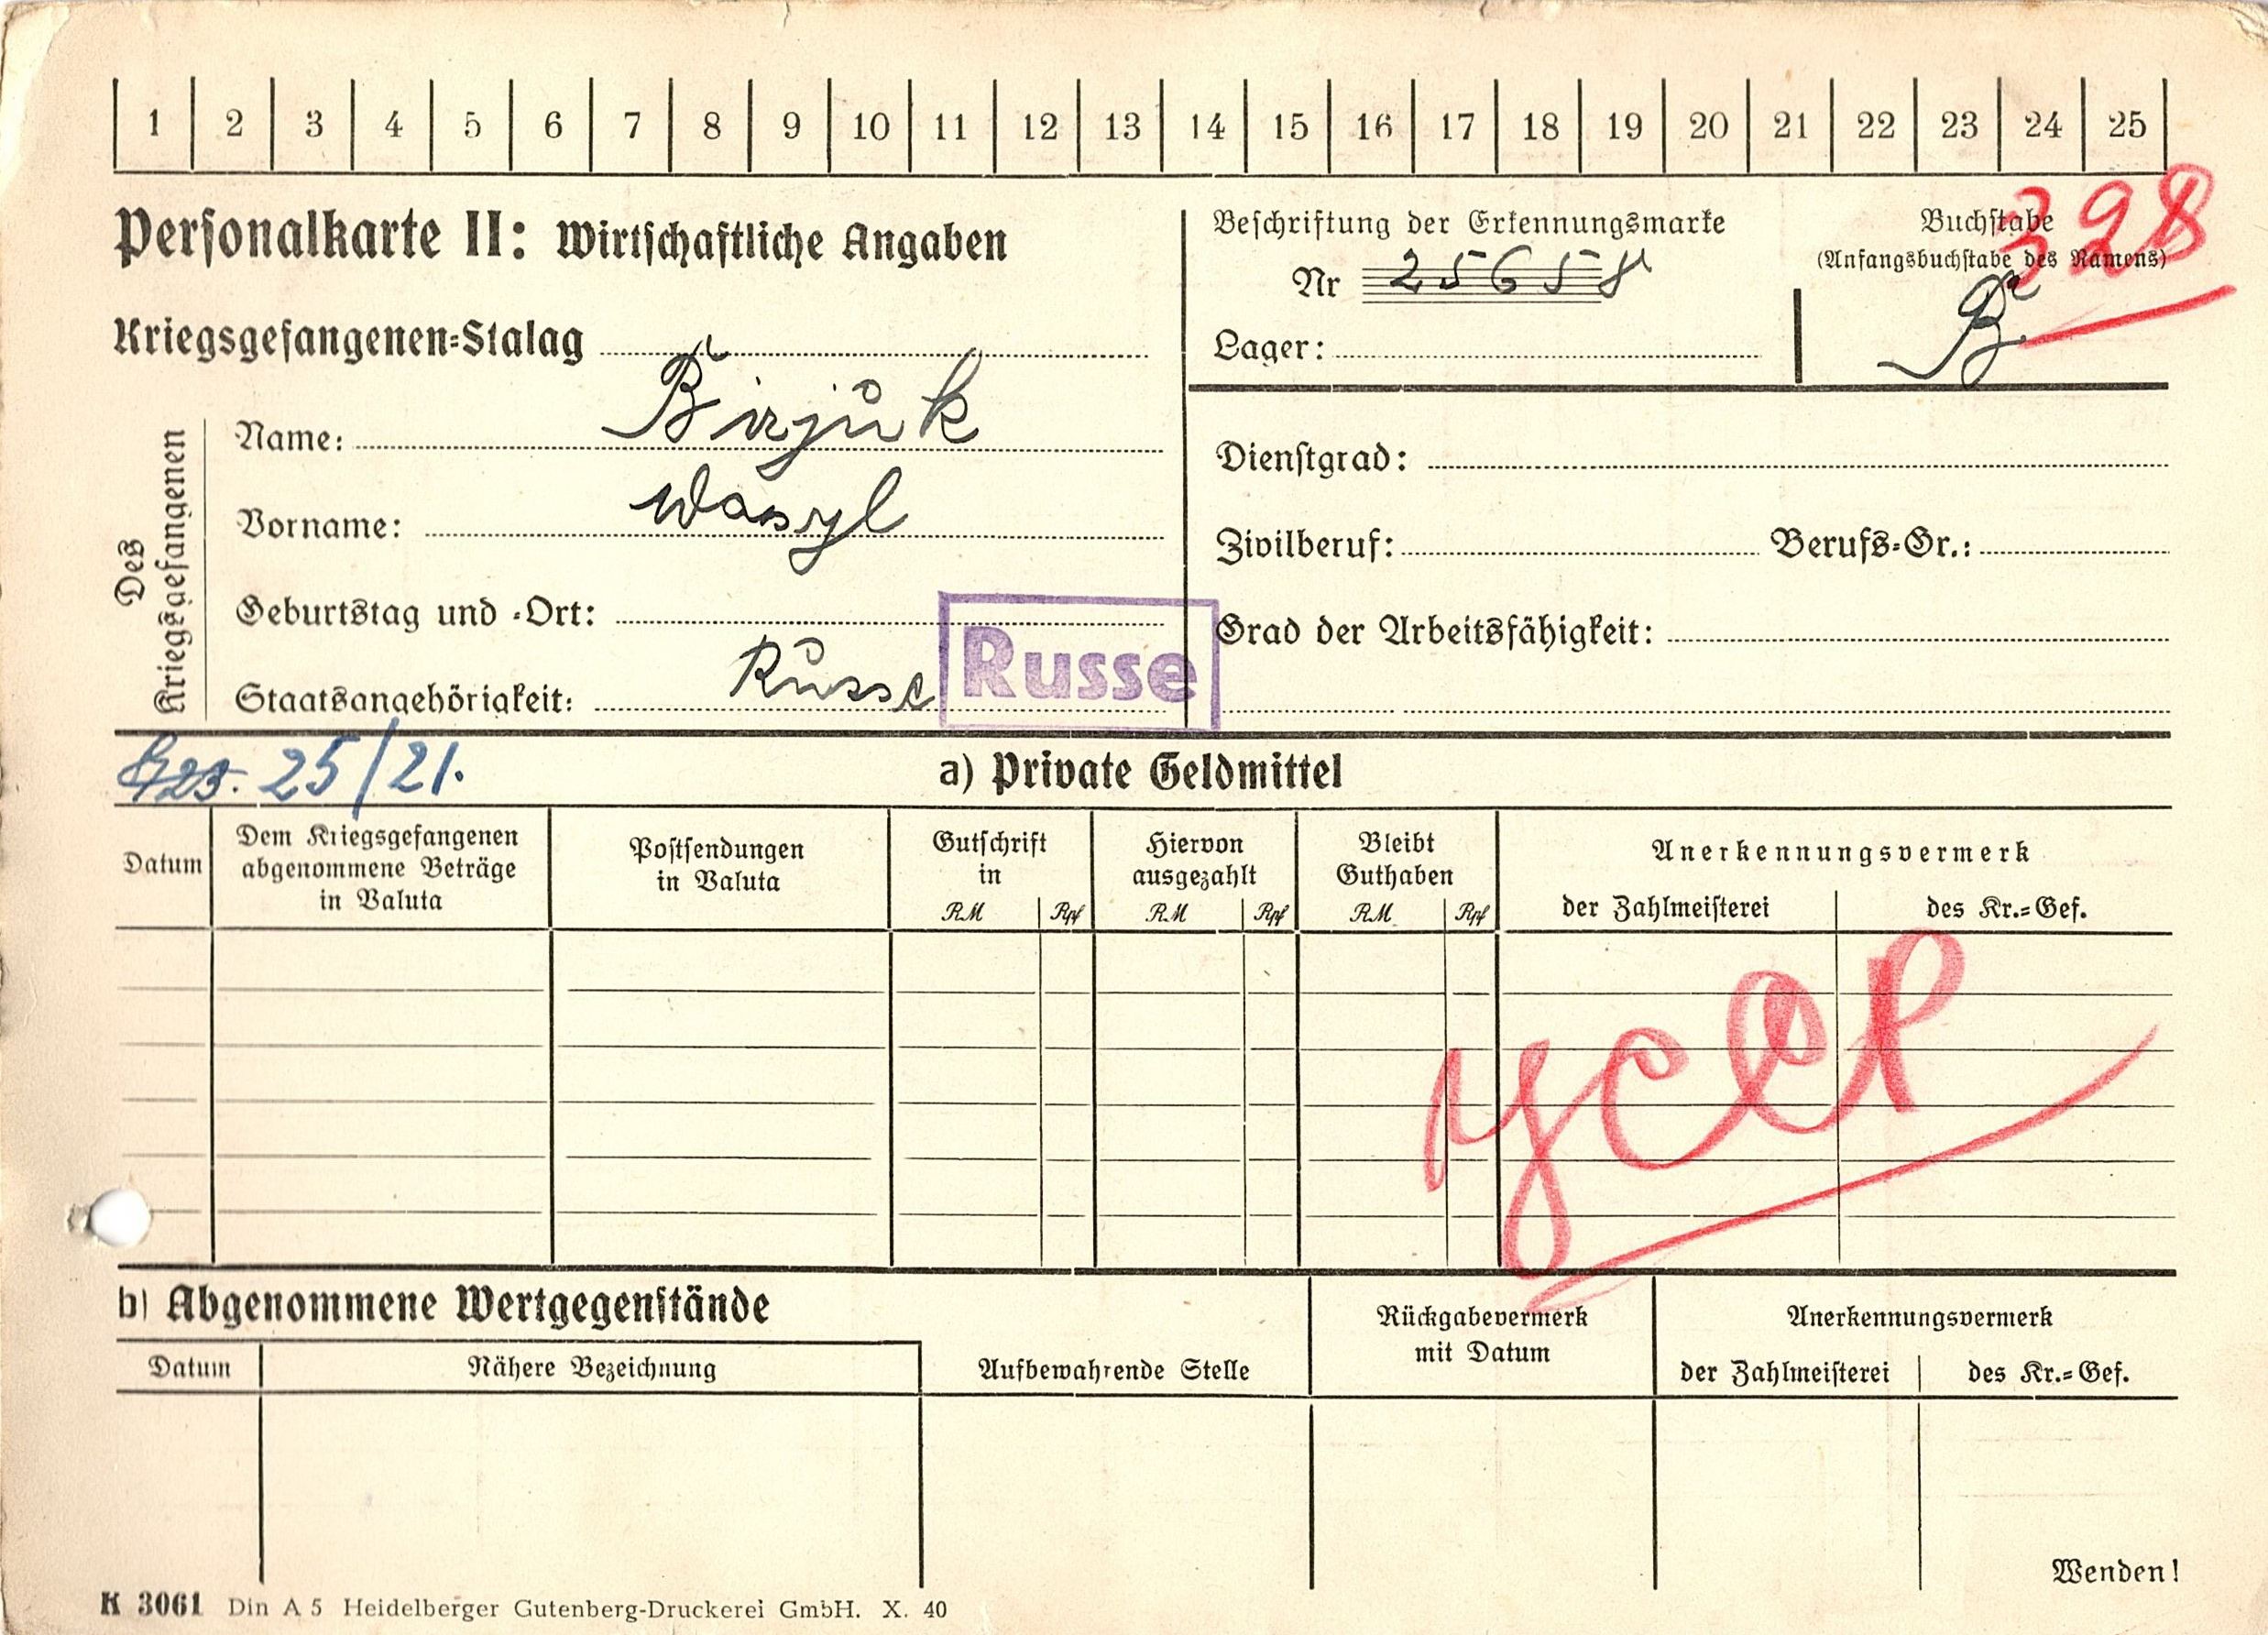 1 2 3 4 5 6 7 8 9 10 11 12 13 14 15 16 17 18 19 20 21 22 23 24 25
Personalkarte II: Wirtschaftliche Angaben
Kriegsgefangenen-Stalag
Beschriftung der Erkennungsmarke
Nr 25658
Lager:
Buchstabe
(Anfangsbuchstabe des Namens)
328
B
Des Kriegsgefangenen
Name: Birjuk
Vorname: Wasyl
Geburtstag und -Ort:
Staatsangehörigkeit: Russe
Russe
Dienstgrad:
Zivilberuf: Berufs-Gr.:
Grad der Arbeitsfähigkeit:
25/21.
a) Private Geldmittel
Datum
Dem Kriegsgefangenen
abgenommene Beträge
in Valuta
Postsendungen
in Valuta
Gutschrift
in
RM Rpf
Hiervon
ausgezahlt
RM Rpf
Bleibt
Guthaben
RM Rpf
Anerkennungsvermerk
der Zahlmeisterei des Kr.-Gef.
УССР
b) Abgenommene Wertgegenstände
Datum Nähere Bezeichnung
Aufbewahrende Stelle
Rückgabevermerk
mit Datum
Anerkennungsvermerk
der Zahlmeisterei des Kr.-Gef.
Wenden!
K 3061 Din A 5 Heidelberger Gutenberg-Druckerei GmbH. X. 40